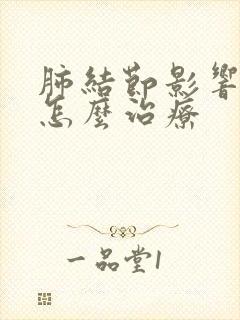 肺結節影響
怎麼治療
一品堂1